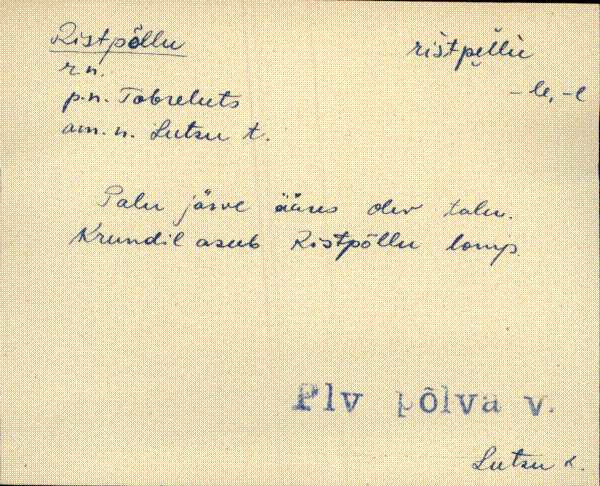 Ristpõllu
ristpe̮llu
r.n.
-le, -l
p.n. Tobreluts
am.n. Lutsu t.
Palu järve ääres olev talu.
Krundil asub Ristpõllu lomp.
Plv põlva v.
Lutsu k.